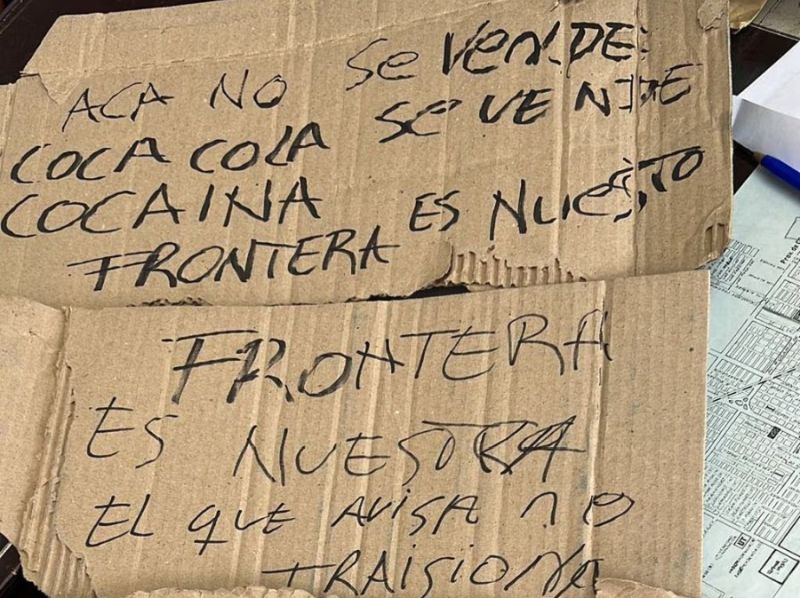 ACA NO SE VENDE
COCA COLA SE VENDE
COCAINA ES NUESTO
FRONTERA
FRONTERA
ES NUESTRA
EL QUE AVISA NO
TRAISIONA